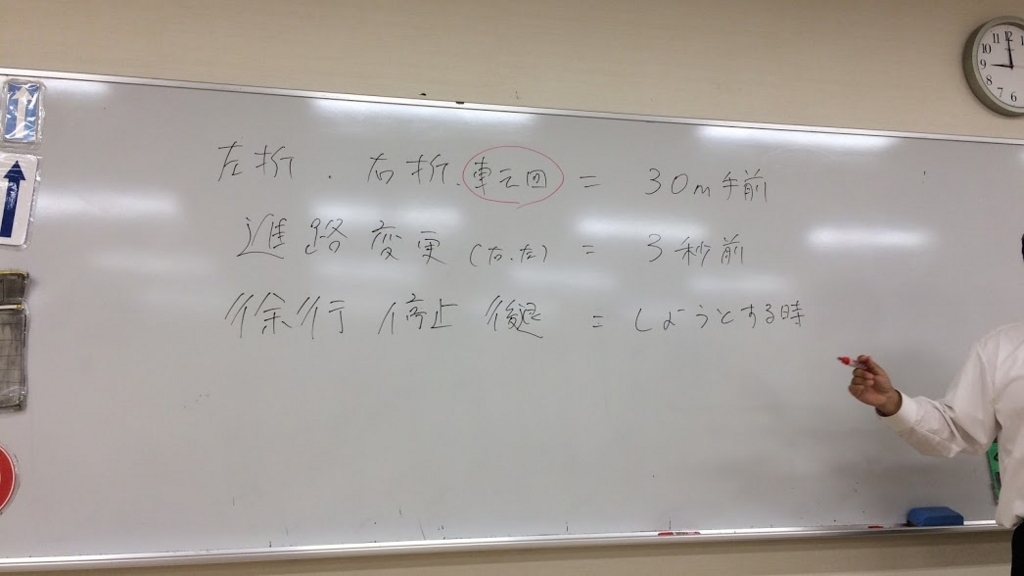 左折．右折．転回 = 30m手前
進路変更(右．左) = 3秒前
徐行 停止 後退 = しようとする時
11 12 1
10
9
8
7 6